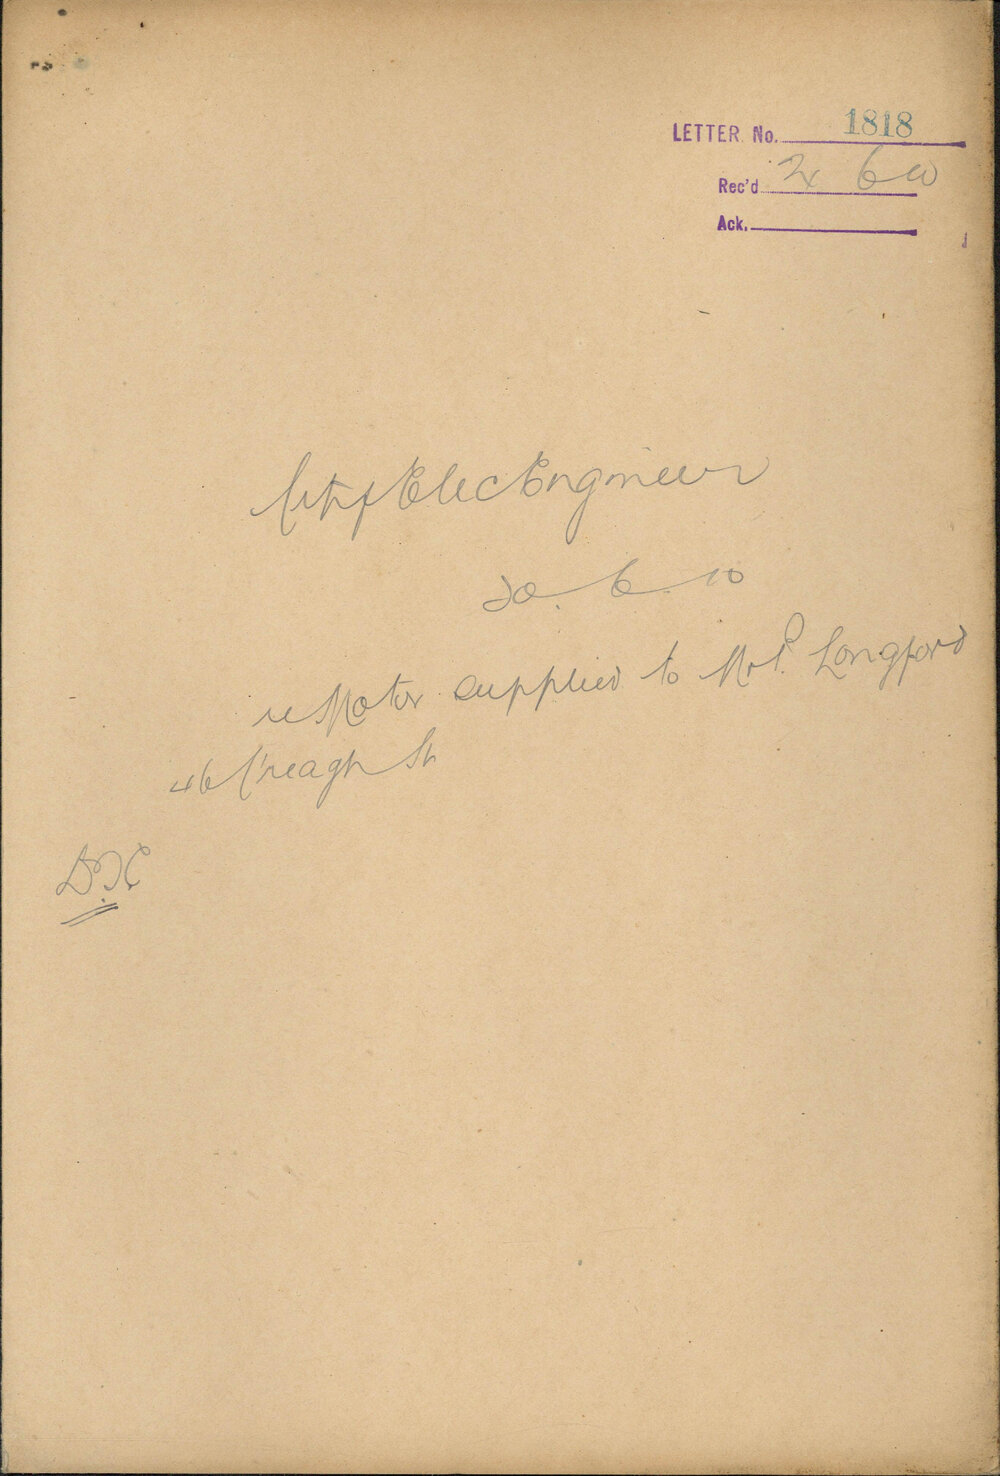 LETTER No. 1818
Rec'd 24 6 10
Ack.
City Elec Engineer
20. 6. 10
re Motor supplied to Mr P. Longford
46 C'reagh St